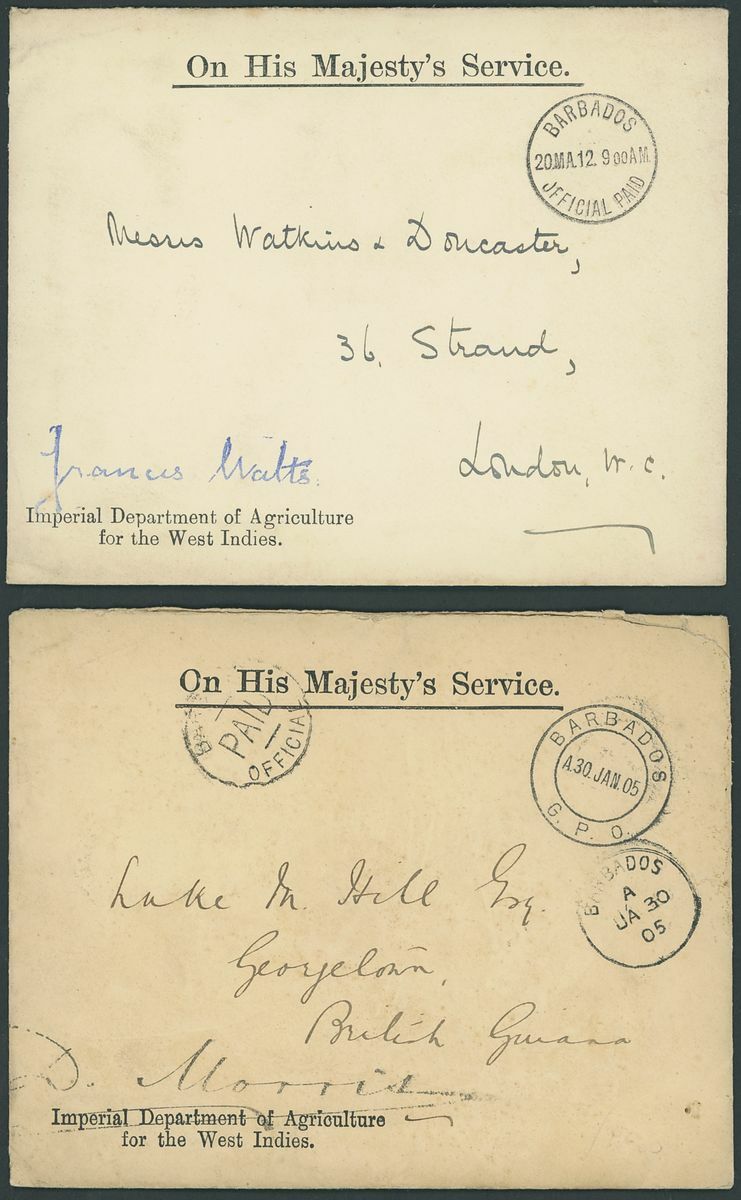 On His Majesty's Service.
BARBADOS
20.MA.12. 9 00AM.
OFFICIAL PAID
Messrs Watkins & Doncaster,
36, Strand,
London, W. C.
Francis Watts.
Imperial Department of Agriculture
for the West Indies.
On His Majesty's Service.
PAID
OFFICIAL
BARBADOS
A.30.JAN.05
G. P. O.
BARBADOS
A
JA 30
05
Luke M. Hill Esq.
Georgetown,
British Guiana
D. Morris
Imperial Department of Agriculture
for the West Indies.